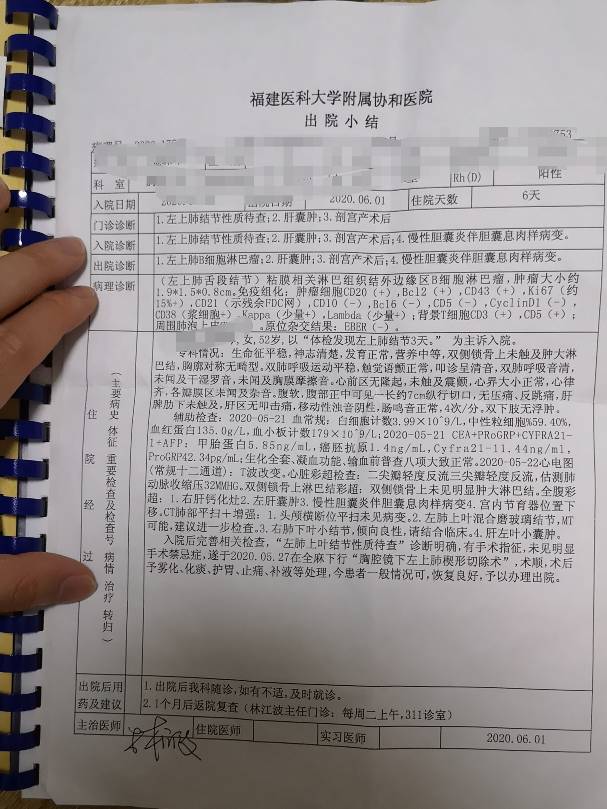 福建医科大学附属协和医院
出院小结
753
科 室
Rh(D) 阳性
入院日期 出院日期 2020.06.01 住院天数 6天
门诊诊断 1.左上肺结节性质待查;2.肝囊肿;3.剖宫产术后
入院诊断 1.左上肺结节性质待查;2.肝囊肿;3.剖宫产术后;4.慢性胆囊炎伴胆囊息肉样病变。
出院诊断 1.左上肺B细胞淋巴瘤;2.肝囊肿;3.剖宫产术后;4.慢性胆囊炎伴胆囊息肉样病变。
病理诊断 (左上肺舌段结节)粘膜相关淋巴组织结外边缘区B细胞淋巴瘤,肿瘤大小约
1.9*1.5*0.8cm。免疫组化:肿瘤细胞CD20(+),Bcl2(+),CD43(+),Ki67(约
15%+),CD21(示残余FDC网),CD10(-),Bcl6(-),CD5(-),CyclinD1(-),
CD38(浆细胞+),Kappa(少量+),Lambda(少量+);背景T细胞CD3(+),CD5(+);
周围肺泡上皮 。原位杂交结果:EBER(-)。
住院经过
(主要病史 体征 重要检查及检查号 病情 治疗 转归)
,女,52岁,以“体检发现左上肺结节3天。”为主诉入院。
专科情况:生命征平稳,神志清楚,发育正常,营养中等,双侧锁骨上未触及肿大淋
巴结,胸廓对称无畸型,双肺呼吸运动平稳,触觉语颤正常,叩诊呈清音,双肺呼吸音清,
未闻及干湿罗音,未闻及胸膜摩擦音。心前区无隆起,未触及震颤,心界大小正常,心律
齐,各瓣膜区未闻及杂音。腹软,腹部正中可见一长约7cm纵行切口,无压痛、反跳痛,肝
脾肋下未触及,肝区无叩击痛,移动性浊音阴性,肠鸣音正常,4次/分,双下肢无浮肿。
辅助检查:2020-05-21 血常规:白细胞计数3.99×10^9/L,中性粒细胞%59.40%,
血红蛋白135.0g/L,血小板计数179×10^9/L;2020-05-21 CEA+PROGRP+CYFRA21-
1+AFP:甲胎蛋白5.85ng/mL,癌胚抗原1.4ng/mL,Cyfra21-11.44ng/ml,
ProGRP42.34pg/mL;生化全套、凝血功能、输血前普查八项大致正常。2020-05-22心电图
(常规十二通道):T波改变。心脏彩超检查:二尖瓣轻度反流三尖瓣轻度反流,估测肺
动脉收缩压32MMHG。双侧锁骨上淋巴结彩超:双侧锁骨上未见明显肿大淋巴结。全腹彩
超:1.右肝钙化灶2.左肝囊肿3.慢性胆囊炎伴胆囊息肉样病变4.宫内节育器位置下
移。CT肺部平扫+增强:1.头颅横断位平扫未见病变。2.左肺上叶混合磨玻璃结节,MT
可能,建议进一步检查。3.右肺下叶小结节,倾向良性,请结合临床。4.肝左叶小囊肿。
入院后完善相关检查,“左肺上叶结节性质待查”诊断明确,有手术指征,未见明显
手术禁忌症,遂于2020.05.27在全麻下行“胸腔镜下左上肺楔形切除术”,术顺,术后
予雾化、化痰、护胃、止痛、补液等处理,今患者一般情况可,恢复良好,予以办理出院。
出院后用 1.出院后我科随诊,如有不适,及时就诊。
药及建议 2.1个月后返院复查(林江波主任门诊:每周二上午,311诊室)
主治医师 住院医师 实习医师 2020.06.01